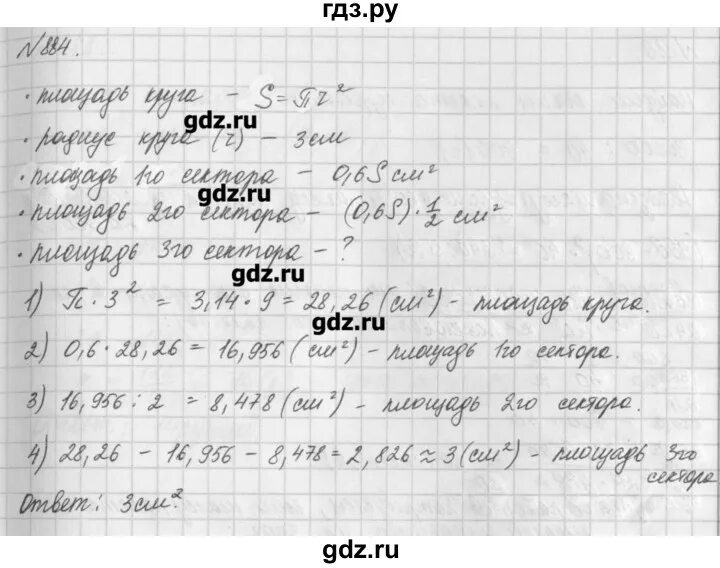 гдз.ру
N884.
• площадь круга – S=πr²
gdz.ru
• радиус круга (r) – 3см
• площадь 1го сектора – 0,6S см²
gdz.ru
• площадь 2го сектора – (0,6S)·1/2 см²
• площадь 3го сектора – ?
gdz.ru
1) π·3² = 3,14·9 = 28,26 (см²) – площадь круга.
gdz.ru
2) 0,6·28,26 = 16,956 (см²) – площадь 1го сектора.
3) 16,956 : 2 = 8,478 (см²) – площадь 2го сектора.
gdz.ru
4) 28,26 – 16,956 – 8,478 = 2,826 ≈ 3 (см²) – площадь 3го
сектора
Ответ: 3см².
gdz.ru
gdz.ru